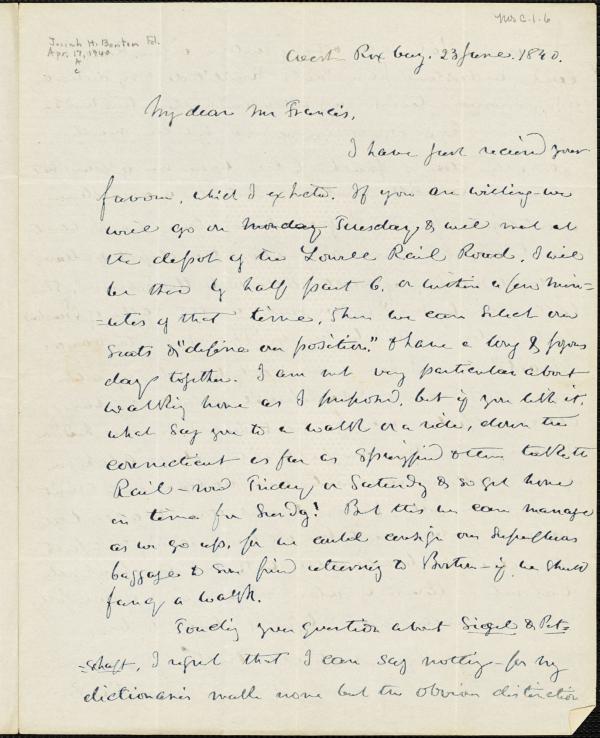 Ms C.1.6
Josiah H. Benton Fd.
Apr. 17, 1940
A
C
West Roxbury. 23 June. 1840.
My dear Mr Francis,
I have just received your
favour, which I expected. If you are willing we
will go on Monday Tuesday, & will meet at
the depot of the Lowell Rail Road, I will
be there by half past 6. or within a few min-
-utes of that time, then we can select our
seats & "define our position." & have a long & joyous
day together. I am not very particular about
walking home as I proposed, but if you like it,
what say you to a walk or a ride, down the
Connecticut as far as Springfield & then take the
Rail-road Friday or Saturday & so get home
in time for Sunday! But this we can manage
as we go up, for we could consign our superfluous
baggage to some friend returning to Boston—if we should
fancy a walk.
Touching your question about Siegel & Pet-
-schaft, I regret that I can say nothing—for my
dictionaries make none but the obvious distinction